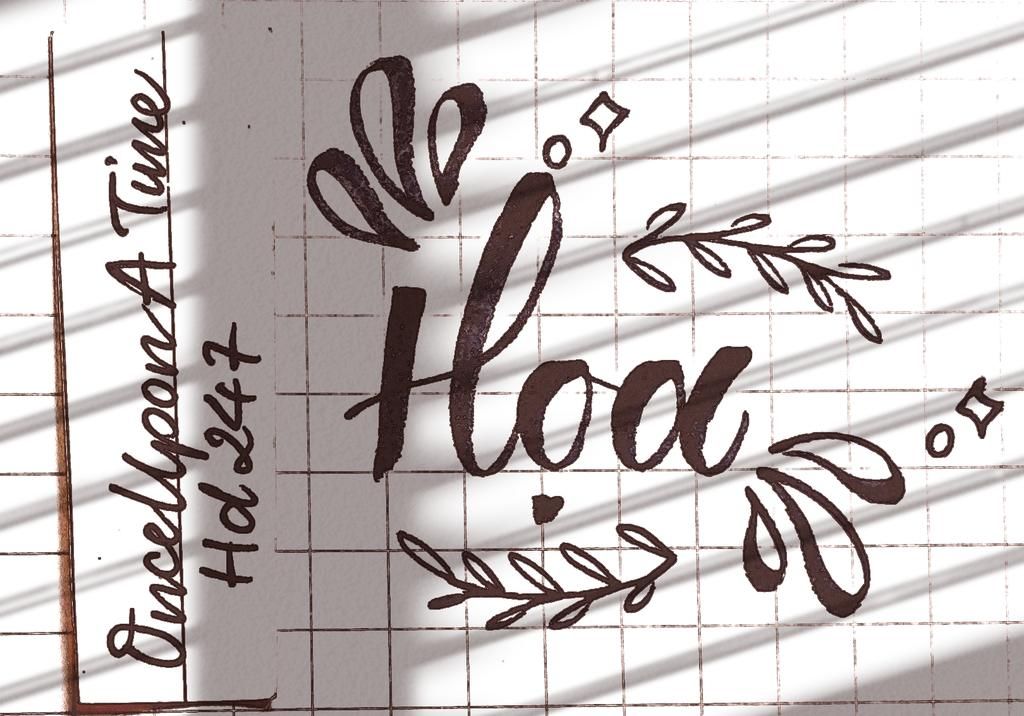 OnceUponA Time
Hd 247
Hoa